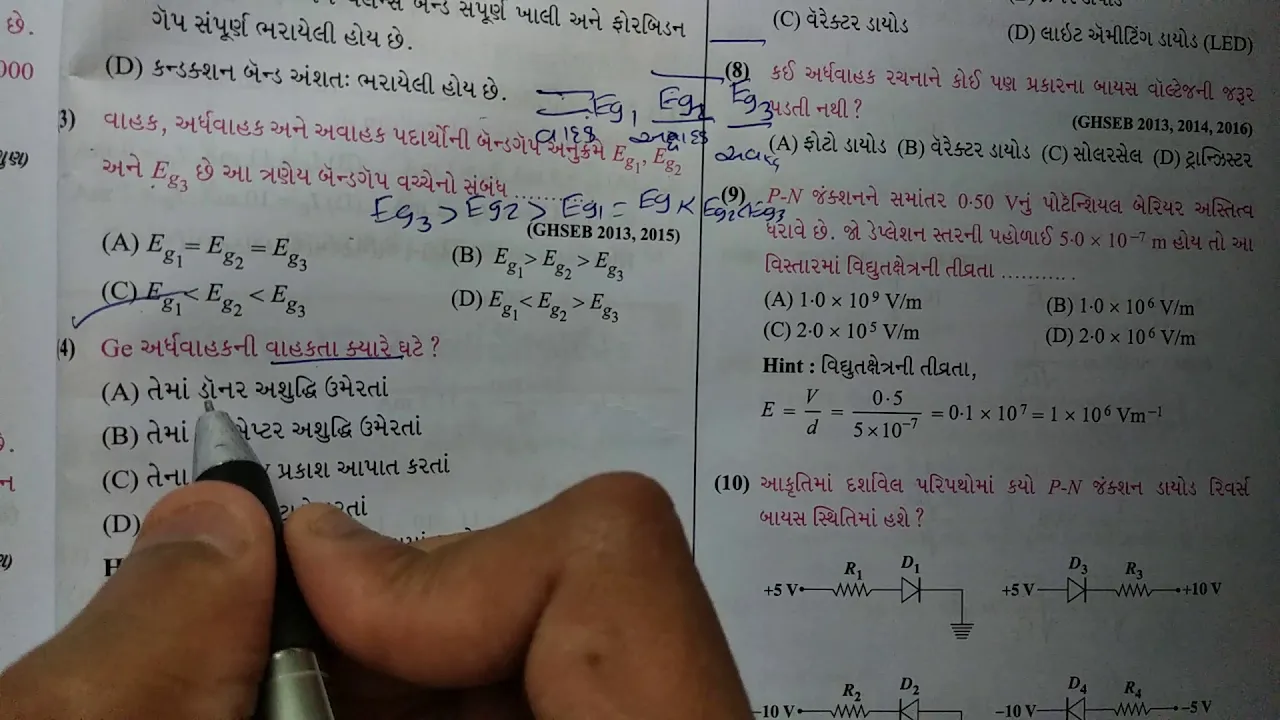 છે.
000
ગૅપ સંપૂર્ણ ભરાયેલી હોય છે.
(D) કન્ડક્શન બૅન્ડ અંશતઃ ભરાયેલી હોય છે.
Eg1 Eg2 Eg3
વાહક
3) વાહક, અર્ધવાહક અને અવાહક પદાર્થોની બૅન્ડગૅપ અનુક્રમે Eg1, Eg2
અને Eg3 છે આ ત્રણેય બૅન્ડગૅપ વચ્ચેનો સંબંધ ............
Eg3 > Eg2 > Eg1 = Eg < Eg2 < Eg3
(GHSEB 2013, 2015)
(A) Eg1 = Eg2 = Eg3
(B) Eg1 > Eg2 > Eg3
(C) Eg1 < Eg2 < Eg3
(D) Eg1 < Eg2 > Eg3
4) Ge અર્ધવાહકની વાહકતા ક્યારે ઘટે ?
(A) તેમાં ડૉનર અશુદ્ધિ ઉમેરતાં
(B) તેમાં અશુદ્ધિ ઉમેરતાં
(C) તેના પ્રકાશ આપાત કરતાં
(D)
(C) વૅરેક્ટર ડાયોડ
(D) લાઇટ ઍમીટિંગ ડાયોડ (LED)
(8) કઈ અર્ધવાહક રચનાને કોઈ પણ પ્રકારના બાયસ વૉલ્ટેજની જરૂર
પડતી નથી ?
(GHSEB 2013, 2014, 2016)
(A) ફોટો ડાયોડ (B) વૅરેક્ટર ડાયોડ (C) સોલરસેલ (D) ટ્રાન્ઝિસ્ટર
(9) P-N જંક્શનને સમાંતર 0·50 Vનું પોટેન્શિયલ બેરિયર અસ્તિત્વ
ધરાવે છે. જો ડેપ્લેશન સ્તરની પહોળાઈ 5·0 × 10⁻⁷ m હોય તો આ
વિસ્તારમાં વિદ્યુતક્ષેત્રની તીવ્રતા ...........
(A) 1·0 × 10⁹ V/m
(B) 1·0 × 10⁶ V/m
(C) 2·0 × 10⁵ V/m
(D) 2·0 × 10⁶ V/m
Hint : વિદ્યુતક્ષેત્રની તીવ્રતા,
E = V/d = 0·5/5×10⁻⁷ = 0·1 × 10⁷ = 1 × 10⁶ Vm⁻¹
(10) આકૃતિમાં દર્શાવેલ પરિપથોમાં કયો P-N જંક્શન ડાયોડ રિવર્સ
બાયસ સ્થિતિમાં હશે ?
R1 D1 D3 R3
+5 V +5 V +10 V
R2 D2 D4 R4
-10 V -10 V -5 V